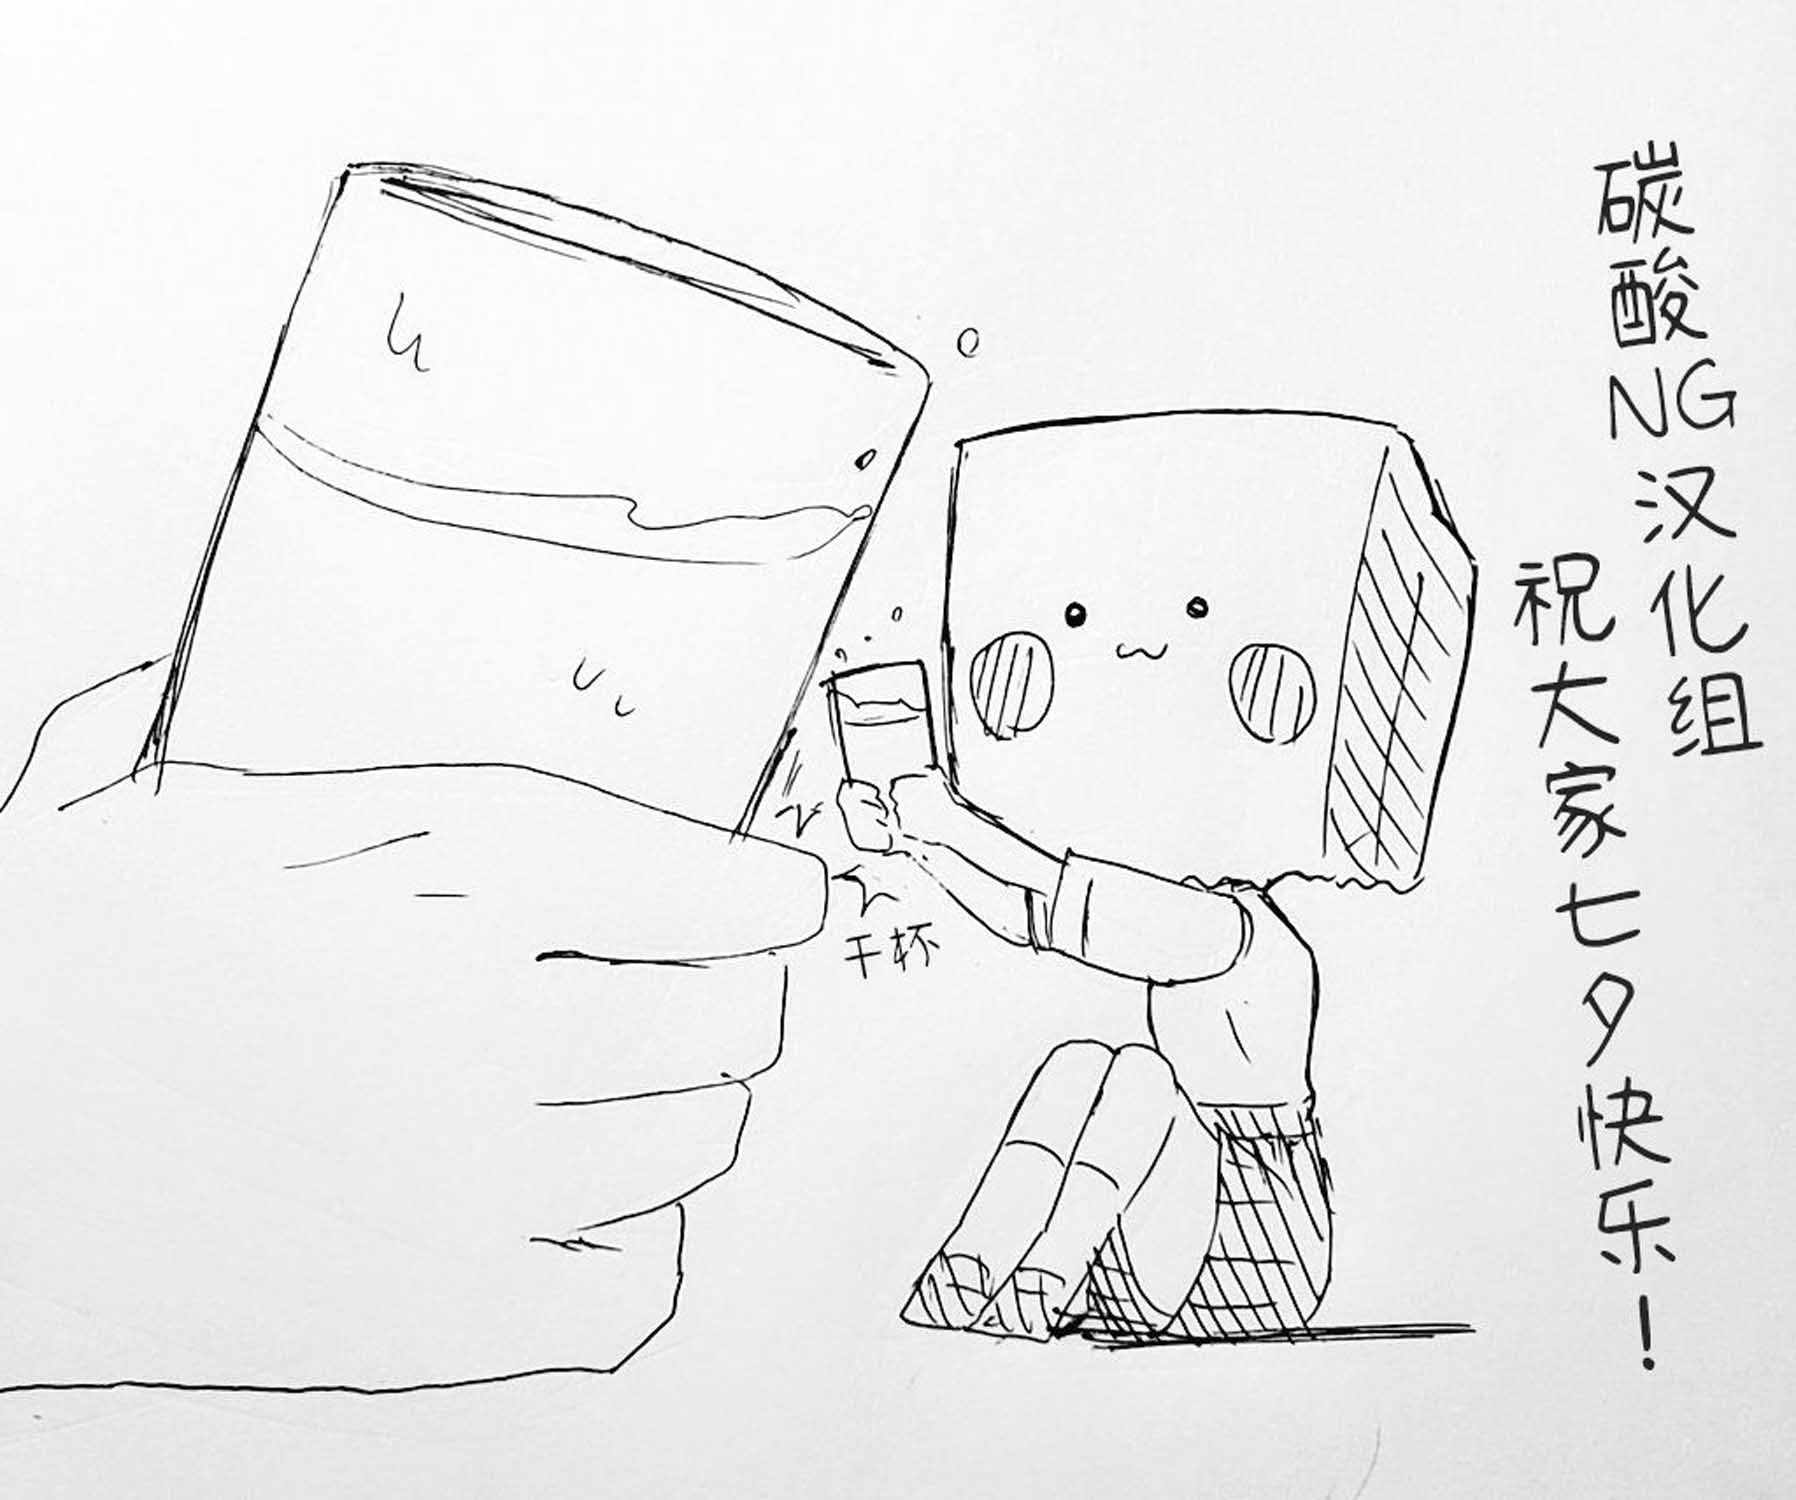 碳酸NG汉化组
祝大家七夕快乐！
干杯